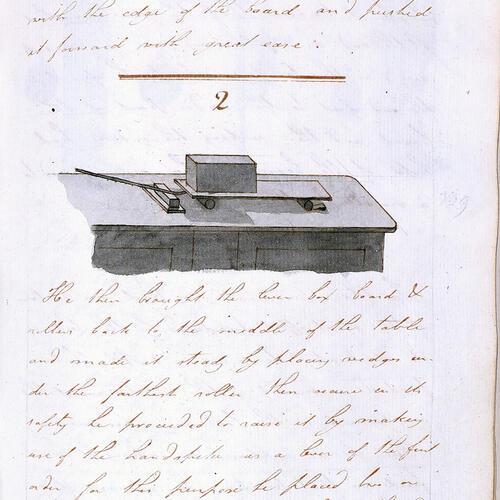 with the edge of the board and pushed
it forward with great ease.
2
He then brought the lever box board &
rollers back to the middle of the table
and made it steady by placing wedges un-
der the farthest roller then secure in its
safety he proceeded to raise it by making
use of the handspike as a lever of the first
order for this purpose he placed two or